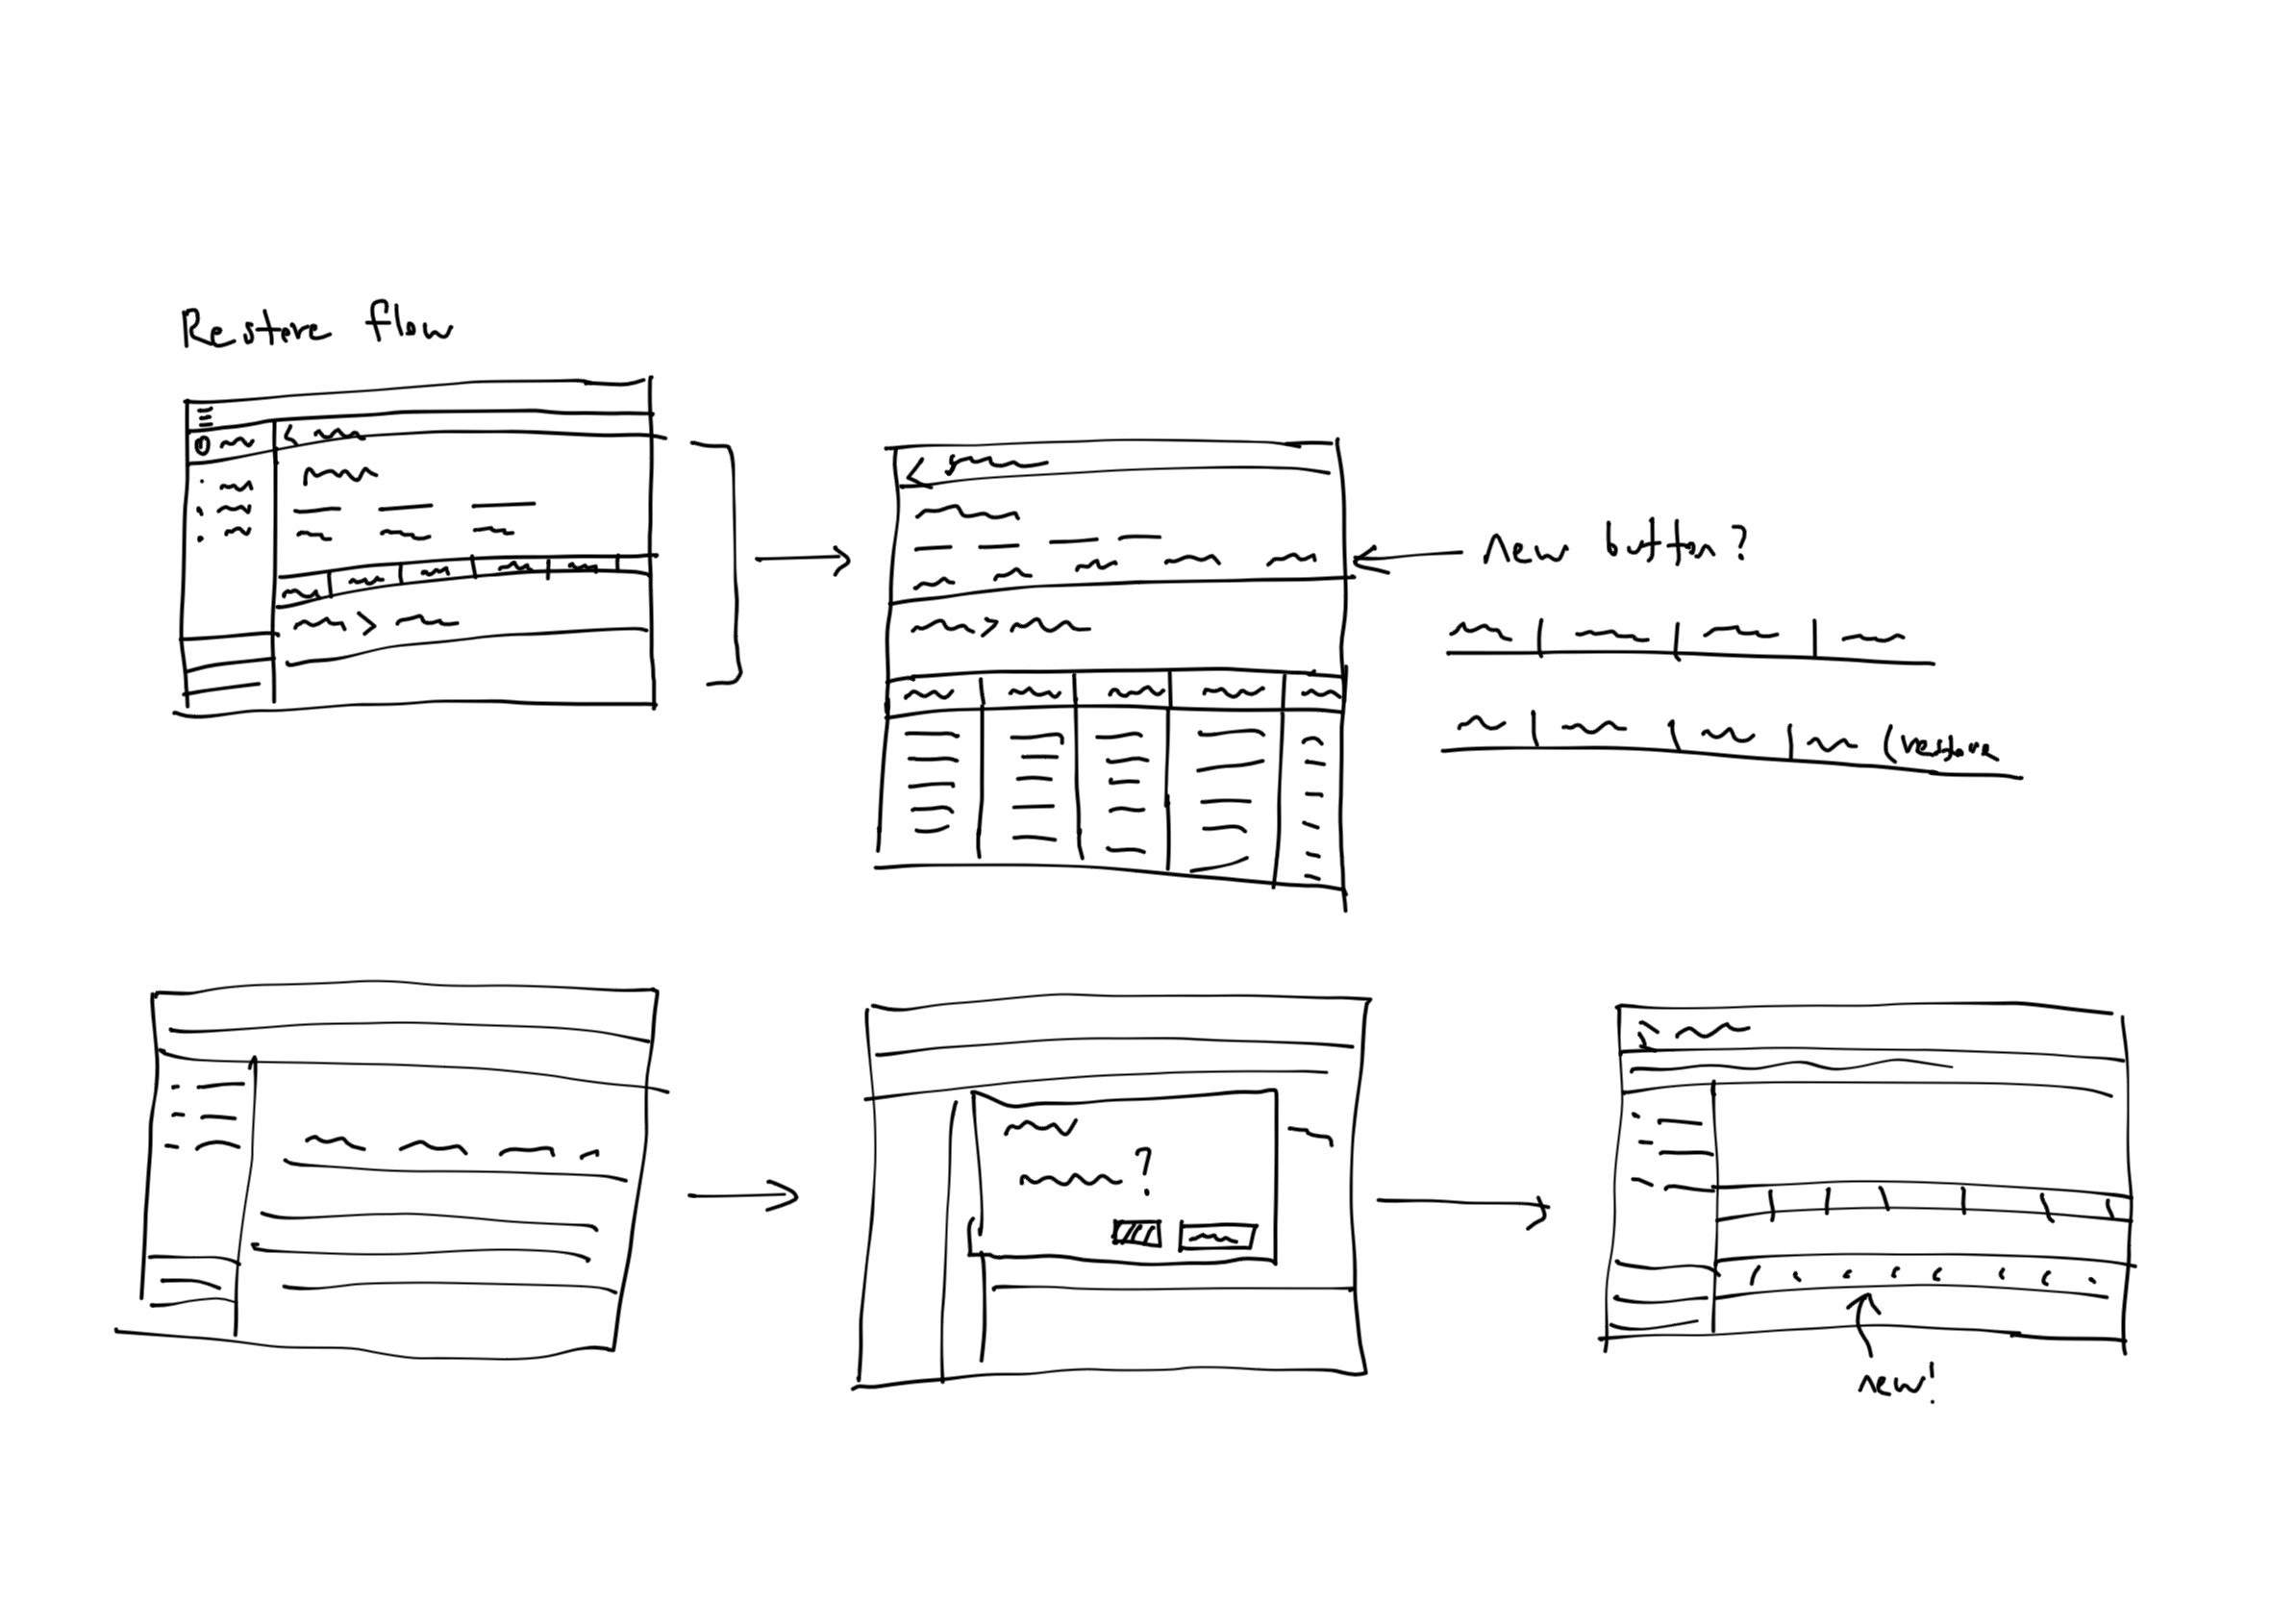 Restore flow
New button?
(restore
new!